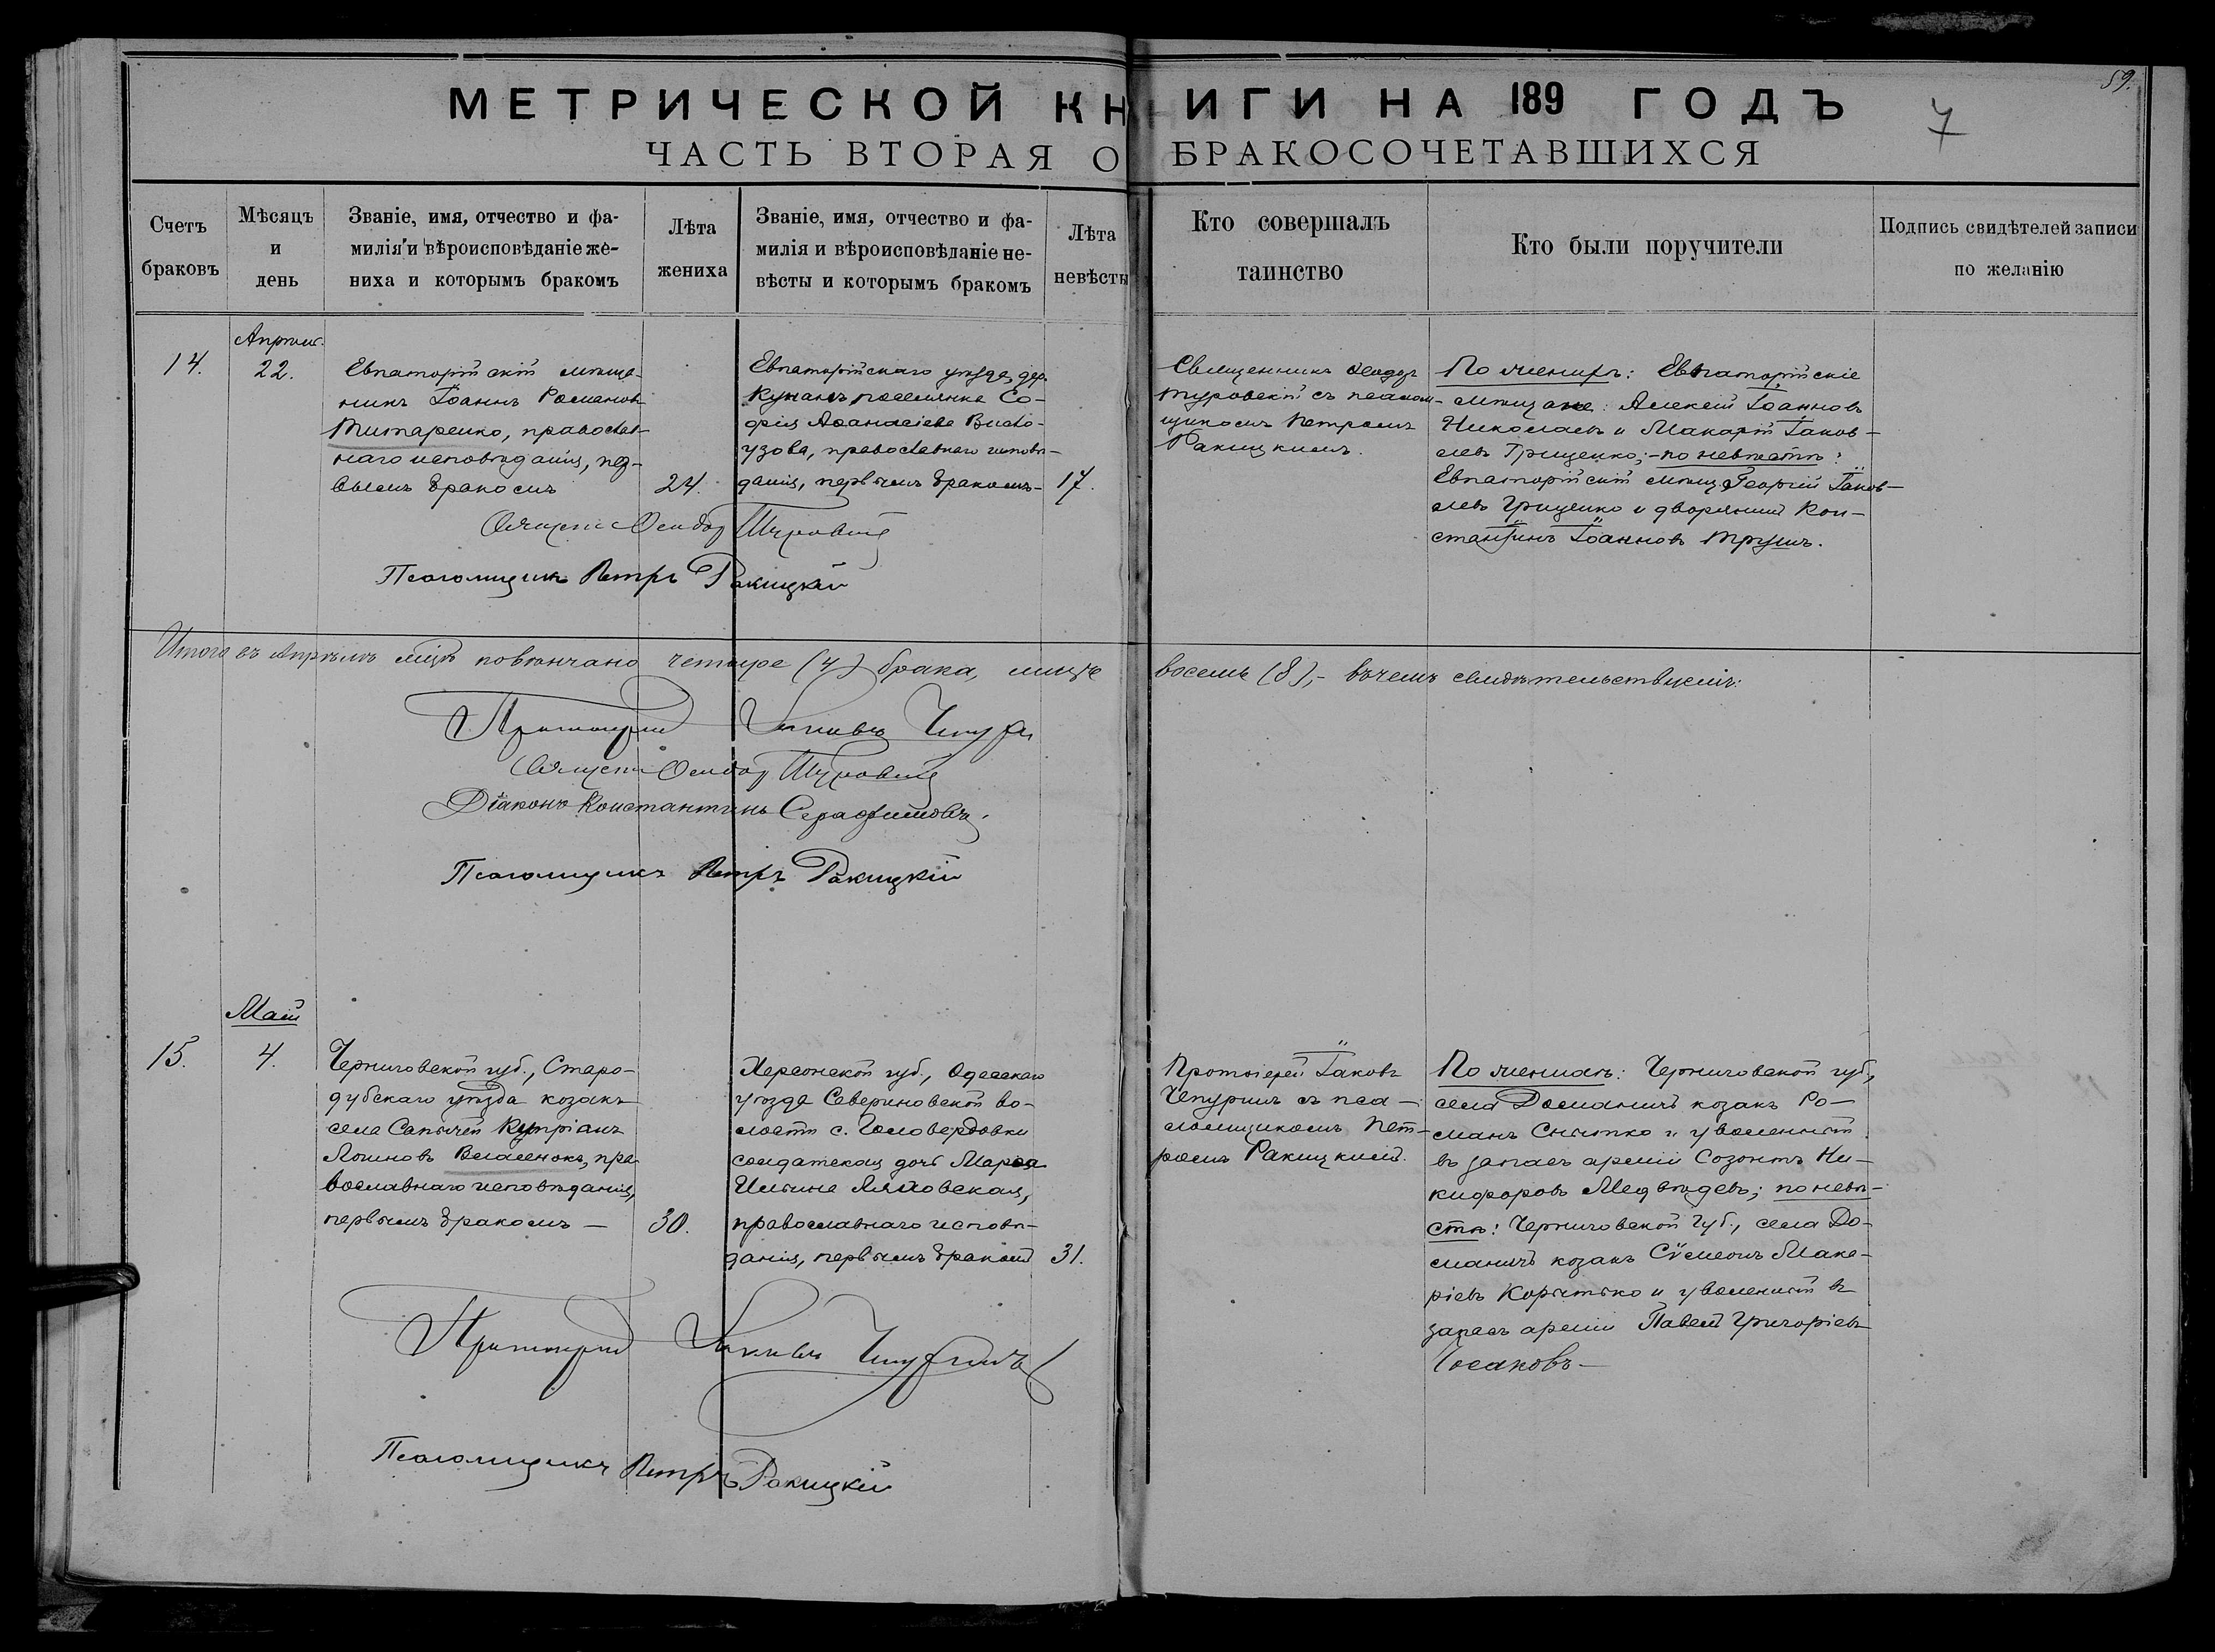 59.
МЕТРИЧЕСКОЙ КНИГИ НА 189 ГОДЪ
7
ЧАСТЬ ВТОРАЯ О БРАКОСОЧЕТАВШИХСЯ
Счетъ
браковъ
Мѣсяцъ
и
день
Званіе, имя, отчество и фа-
милія и вѣроисповѣданіе же-
ниха и которымъ бракомъ
Лѣта
жениха
Званіе, имя, отчество и фа-
милія и вѣроисповѣданіе не-
вѣсты и которымъ бракомъ
Лѣта
невѣсты
Кто совершалъ
таинство
Кто были поручители
Подпись свидѣтелей записи
по желанію
14.
Апрѣль.
22.
Евпаторійскій мѣща-
нинъ Іоаннъ Романовъ
Титаренко, православ-
наго исповѣданія, пер-
вымъ бракомъ
24.
Евпаторійскаго уѣзда, дер.
поселянка Со-
фія Аѳанасіева
православнаго исповѣ-
данія, первымъ бракомъ-
17.
Священникъ Ѳеодоръ
Туровскій съ псалом-
щикомъ Петромъ
Ракицкимъ.
По женихѣ: Евпаторійскіе
мѣщане: Алексій Іоанновъ
Николаевъ и Макарій Іаков-
левъ Грищенко;-по невѣстѣ:
Евпаторійскій мѣщ. Георгій Іаков-
левъ Грищенко и дворянинъ Кон-
стантинъ Іоанновъ Трушъ.
Священ. Ѳеодоръ Туровскій
Псаломщикъ Петръ Ракицкій
Итого въ Апрѣлѣ м҃цѣ повѣнчано четыре (4) брака, лицъ восемь (8),- въ чемъ свидѣтельствуемъ:
Протоіерей Іаковъ
Священ. Ѳеодоръ Туровскій
Діаконъ Константинъ Серафимовъ.
Псаломщикъ Петръ Ракицкій
15.
Май
4.
Черниговской губ., Старо-
дубскаго уѣзда козакъ
села Сапычей Купріанъ
Логиновъ Власенокъ, пра-
вославнаго исповѣданія,
первымъ бракомъ —
30.
Херсонской губ., Одесскаго
уѣзда Севериновской во-
лости с.
солдатская дочь Марѳа
Ильина Ляховская,
православнаго исповѣ-
данія, первымъ бракомъ
31.
Протоіерей Іаковъ
Чепуринъ съ пса-
ломщикомъ Пет-
ромъ Ракицкимъ.
По женихѣ: Черниговской губ.,
села Доманичъ козакъ Ро-
манъ Снытко и уволенный
въ запасъ арміи Созонтъ Ни-
кифоровъ Медвѣдевъ; по невѣ-
стѣ: Черниговской губ., села До-
маничъ козакъ Сѵмеонъ Мака-
ріевъ Корытько и уволенный въ
запасъ арміи Павелъ Григоріевъ
Протоіерей Іаковъ Чепуринъ
Псаломщикъ Петръ Ракицкій